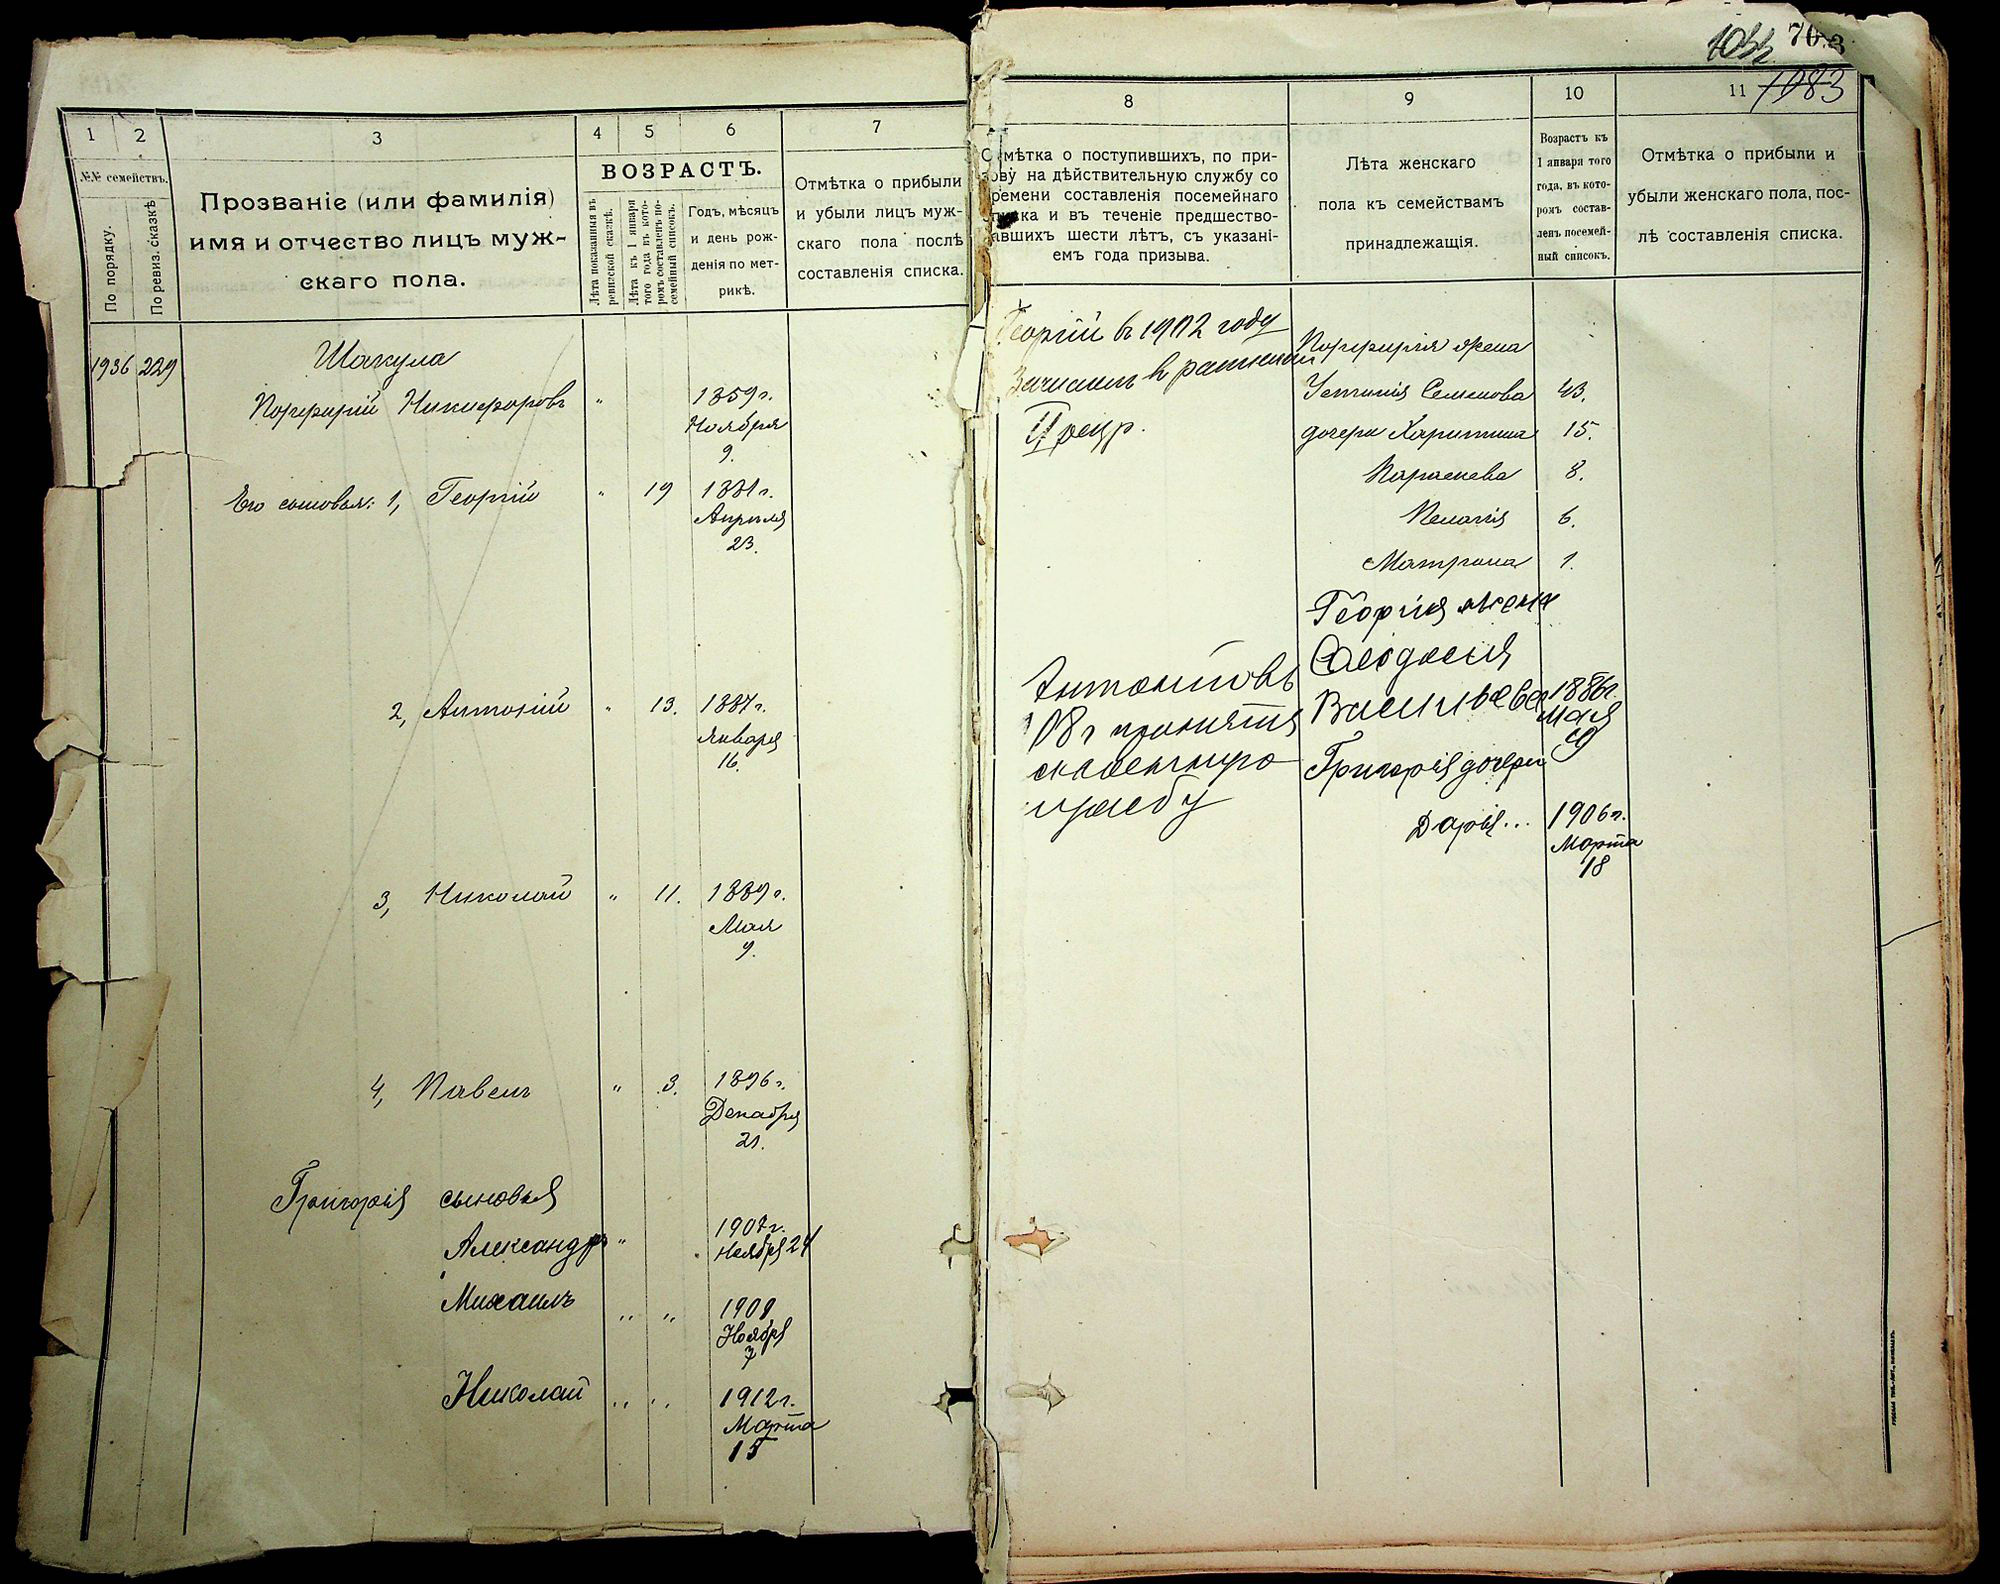 1
2
3
4
5
6
7
№№ семействъ.
По порядку.
По ревиз. сказкѣ
Прозваніе (или фамилія)
имя и отчество лицъ муж-
скаго пола.
ВОЗРАСТЪ.
Лѣта показанныя въ
ревизской сказкѣ.
Лѣта къ 1 января
того года въ кото-
ромъ составленъ по-
семейный списокъ.
Годъ, мѣсяцъ
и день рож-
денія по мет-
рикѣ.
Отмѣтка о прибыли
и убыли лицъ муж-
скаго пола послѣ
составленія списка.
1936 229
Шакула
Порфирій Никифоровъ "
1859 г.
Ноября
9.
Его сыновья: 1, Георгій " 19 1881 г.
Апрѣля
23.
2, Антоній " 13. 1887 г.
Января
16.
3, Николай " 11. 1889 г.
Мая
9.
4, Павелъ " 3. 1896 г.
Декабря
21.
Григорія сыновья
Александръ " 1907 г.
Ноября 24
Михаилъ " " 1909
Ноября
7
Николай " " 1912 г.
Марта
15
70
1083
8
9
10
11
Отмѣтка о поступившихъ, по при-
зову на дѣйствительную службу со
времени составленія посемейнаго
списка и въ теченіе предшество-
вавшихъ шести лѣтъ, съ указані-
емъ года призыва.
Лѣта женскаго
пола къ семействамъ
принадлежащія.
Возрастъ къ
1 января того
года, въ кото-
ромъ состав-
ленъ посемей-
ный списокъ.
Отмѣтка о прибыли и
убыли женскаго пола, пос-
лѣ составленія списка.
Георгій въ 1902 году
Зачисленъ в ратники
II разр.
Антоній въ
08 г принятъ
на
службу
Порфирія жена
Устинія Семенова 43.
дочери Харитина 15.
Параскева 8.
Пелагія 6.
Матрона 1.
Георгія жена
Феодосія
Васильева 1886 г.
Мая
9
Григорія дочери
Дарія... 1906 г.
Марта
18